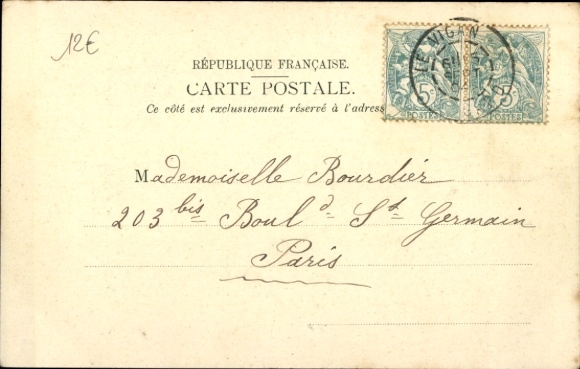 12€
RÉPUBLIQUE FRANÇAISE.
CARTE POSTALE.
Ce côté est exclusivement réservé à l'adress
LE VIGAN
5c 5c
POSTES POSTES
Mademoiselle Bourdier
203 bis Boulᵈ Sᵗ Germain
Paris